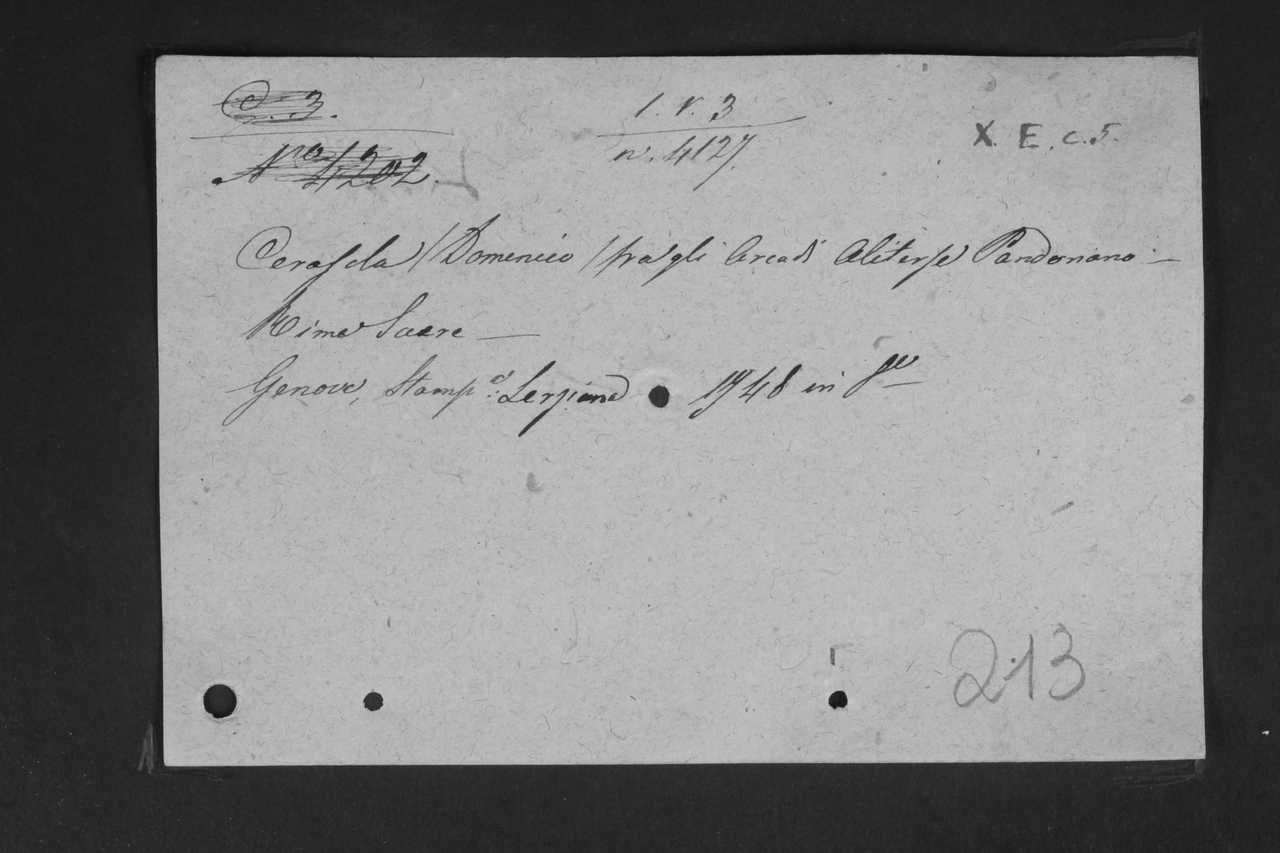 G. 3.
N.ro 4202.
1. r. 3
n. 4127.
X. E. c. 5.
Cerasola (Domenico) fra gli Arcadi Aliterse
Rime Sacre —
Genova, Stamp.a Lerziana 1748 in 8vo
213